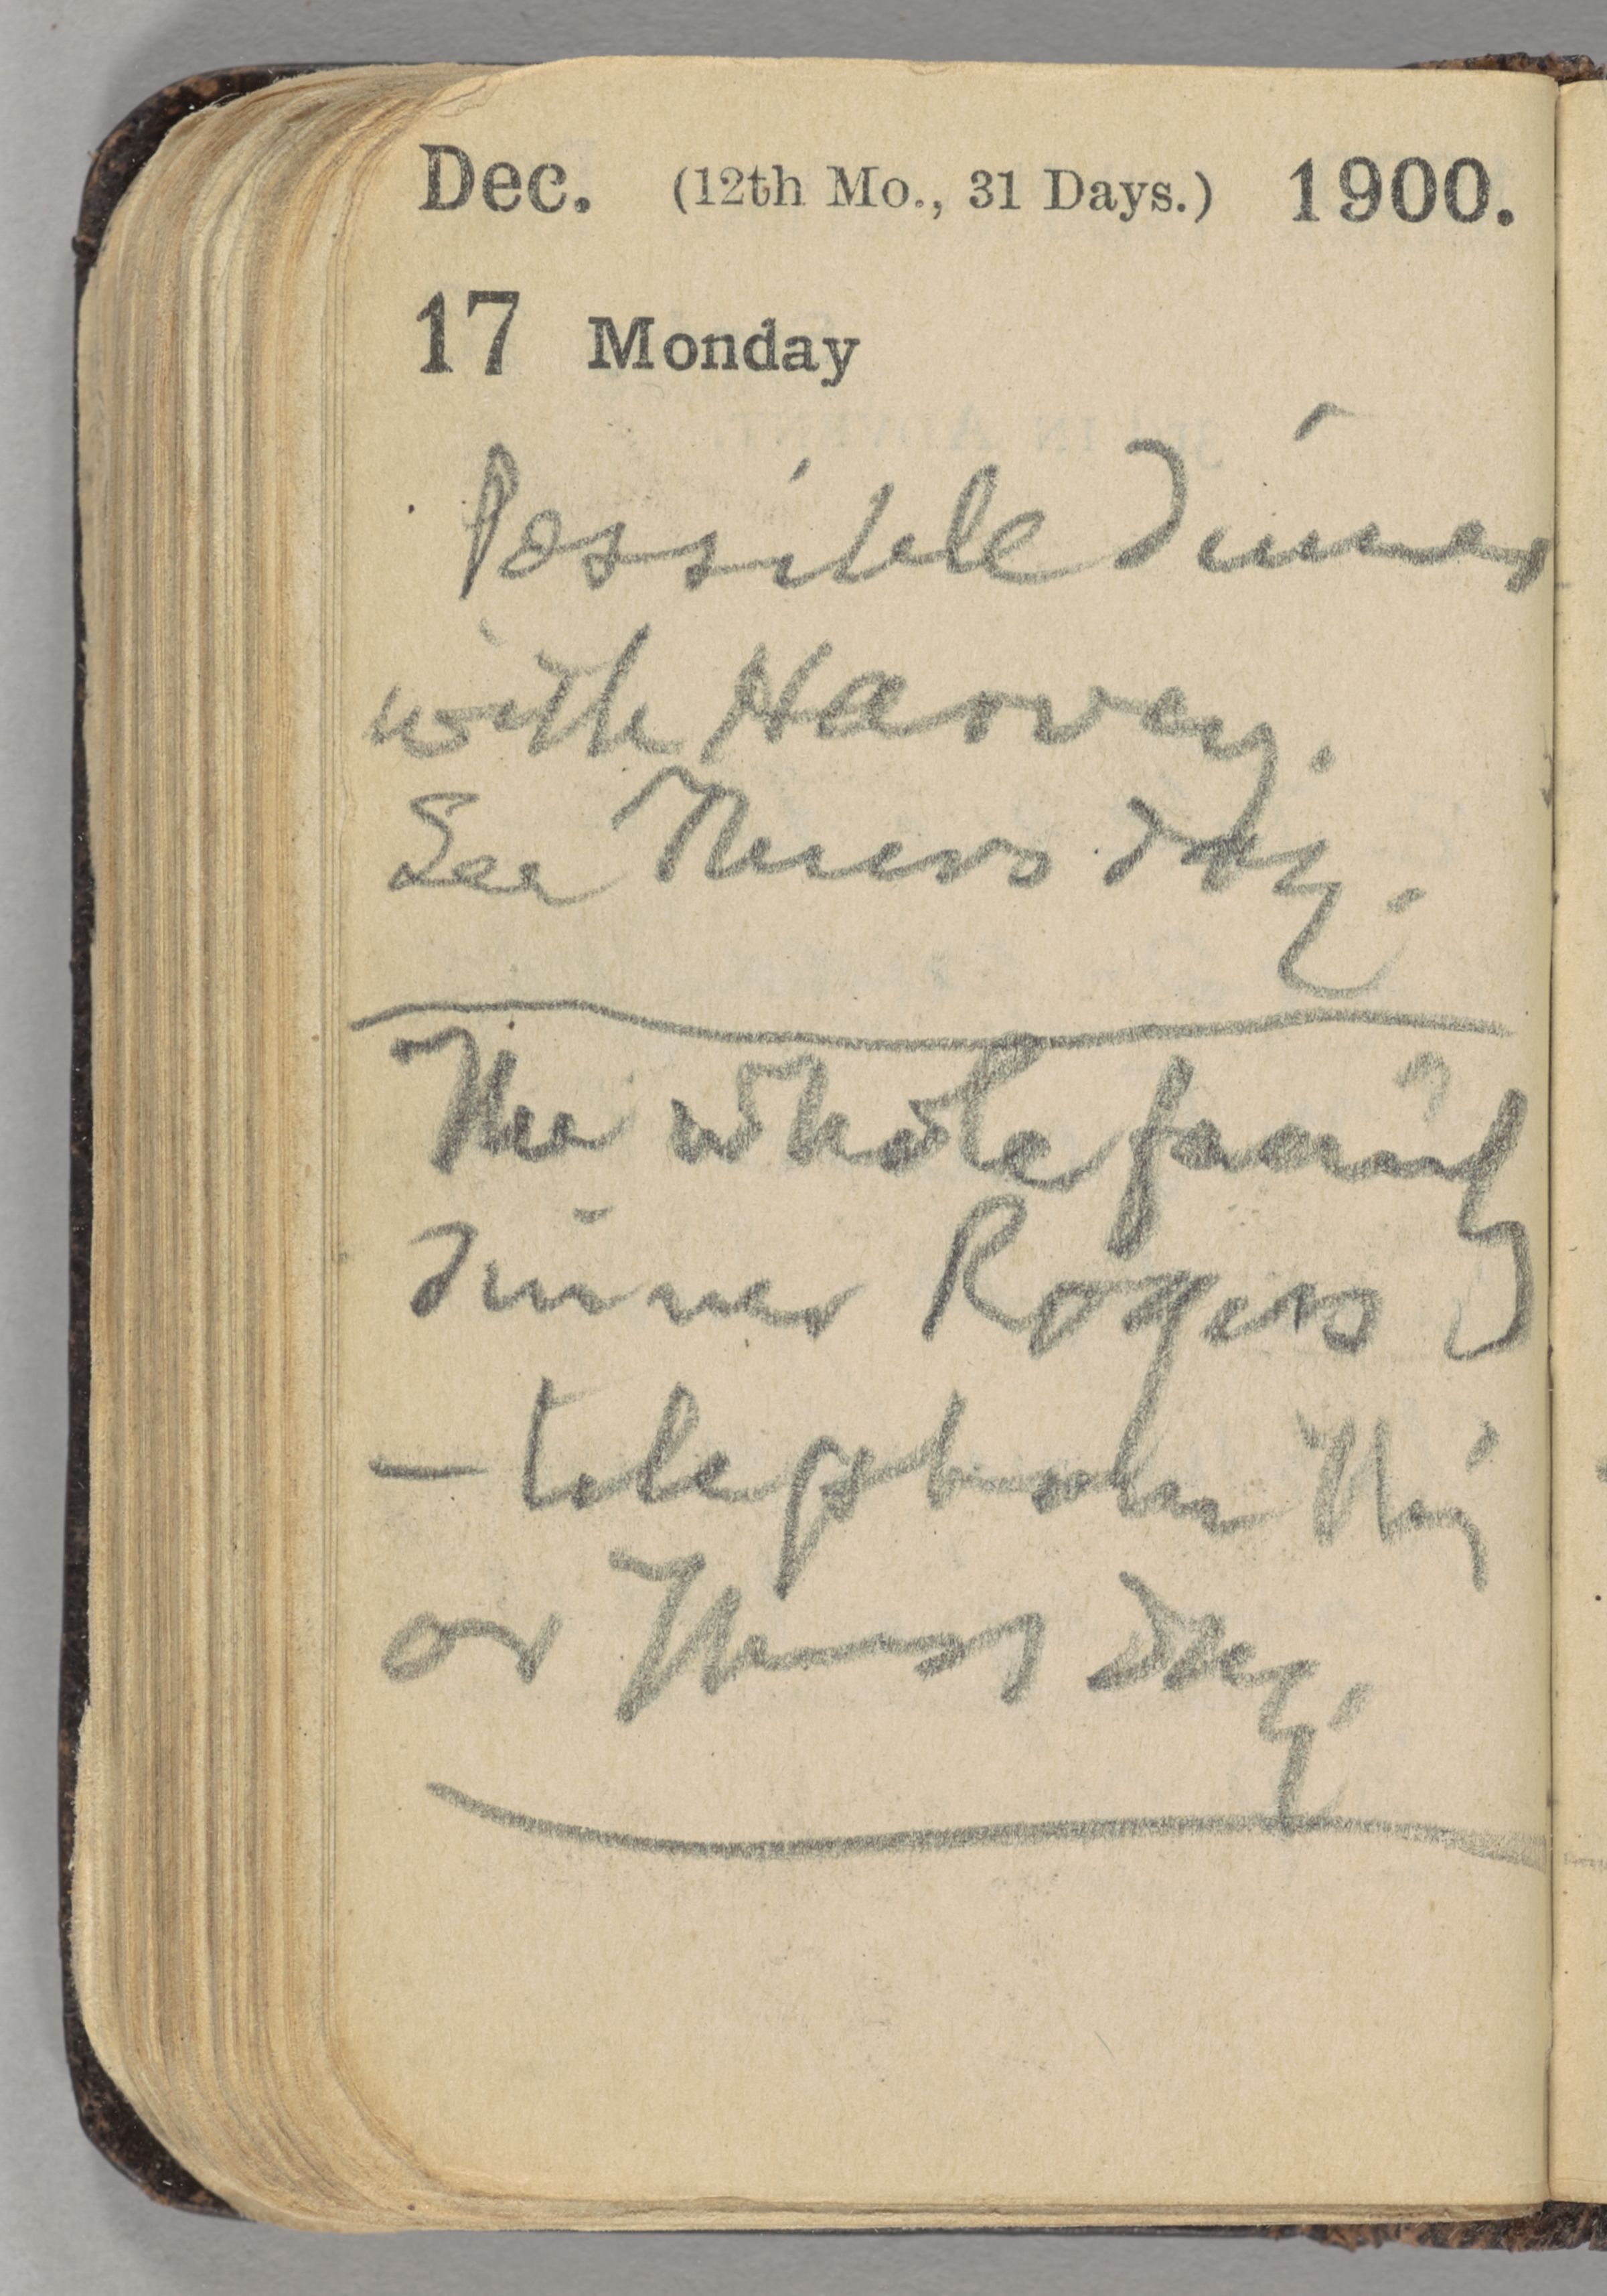 Dec. (12th Mo., 31 Days.) 1900.
17 Monday
Possible dinner
with Harvey.
See Thursday.
The whole family
dinner Rogers
— telephone
or Thursday.